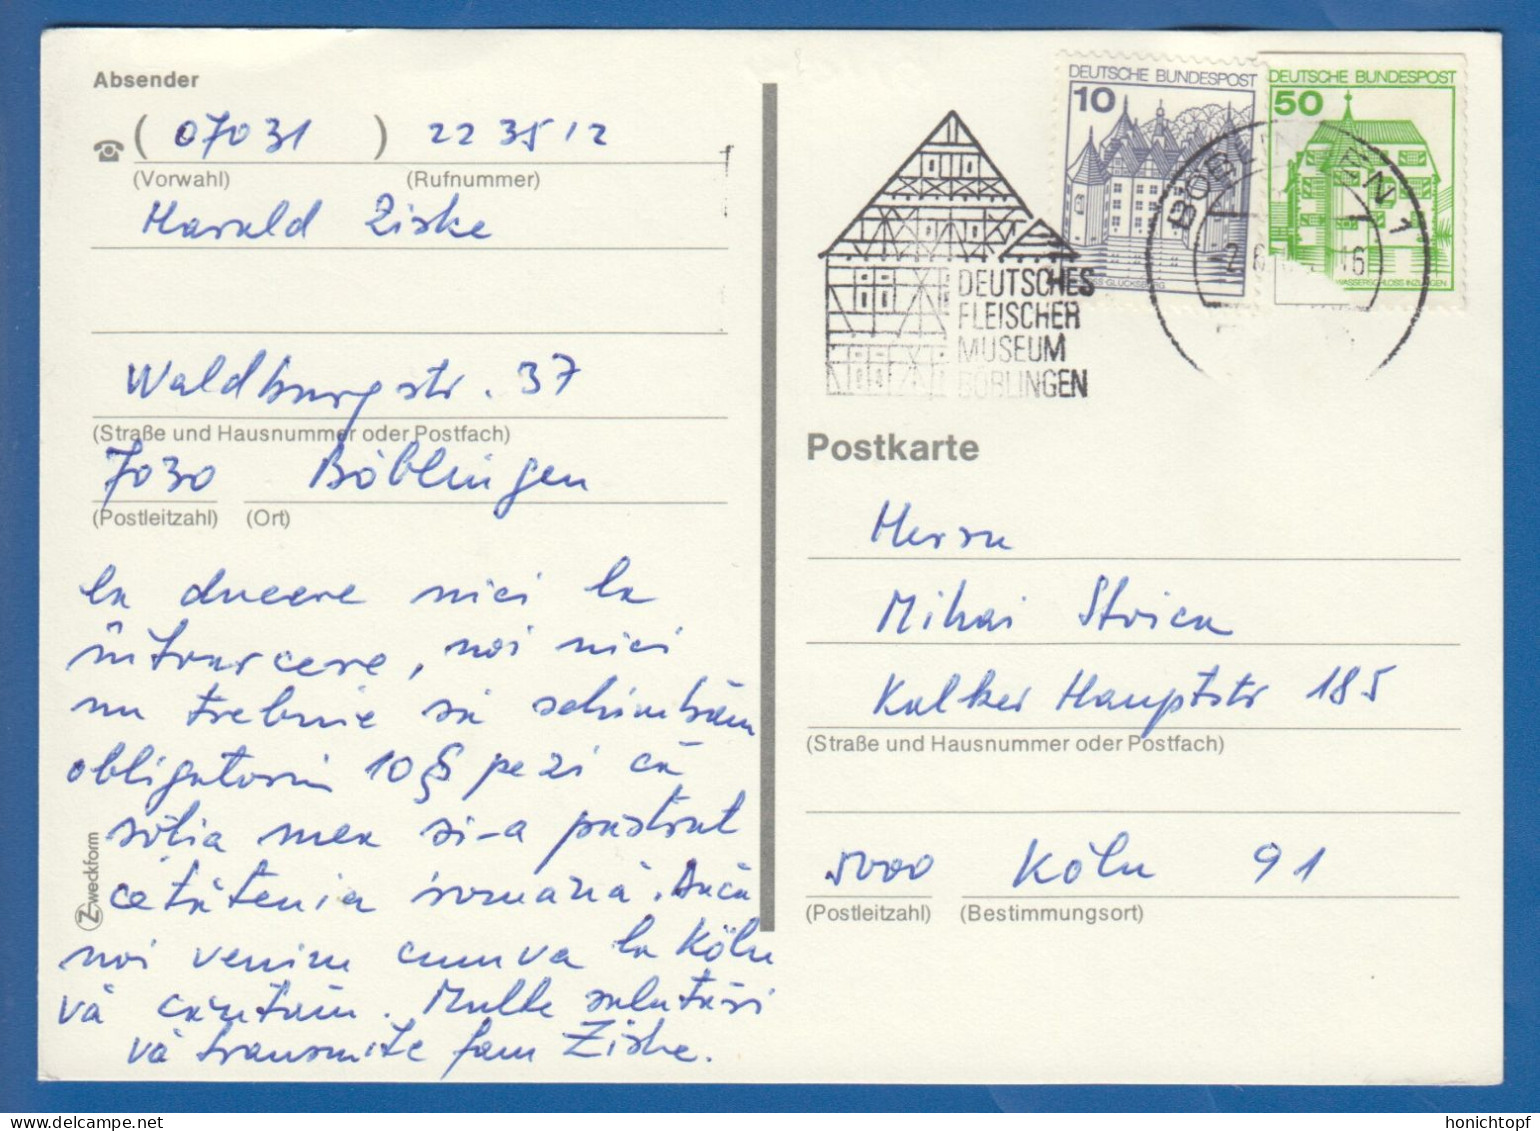 Absender
(07031) 223512
(Vorwahl) (Rufnummer)
Harald Ziske
Waldburgstr. 37
(Straße und Hausnummer oder Postfach)
7030 Böblingen
(Postleitzahl) (Ort)
la ducere nici la
întoarcere, noi nici
nu trebuie să schimbăm
obligatoriu 10 $ pe zi că
soția mea și-a păstrat
cetățenia română. Dacă
noi venim cumva la Köln
vă căutăm. Multe salutări
vă transmite fam Ziske.
Zweckform
DEUTSCHE BUNDESPOST
10
DEUTSCHE BUNDESPOST
50
WASSERSCHLOSS INZLINGEN
BÖBLINGEN 1
DEUTSCHES
FLEISCHER
MUSEUM
BÖBLINGEN
Postkarte
Herrn
Mihai Stoica
Kalker Hauptstr 185
(Straße und Hausnummer oder Postfach)
5000 Köln 91
(Postleitzahl) (Bestimmungsort)
honichtopf
www.delcampe.net